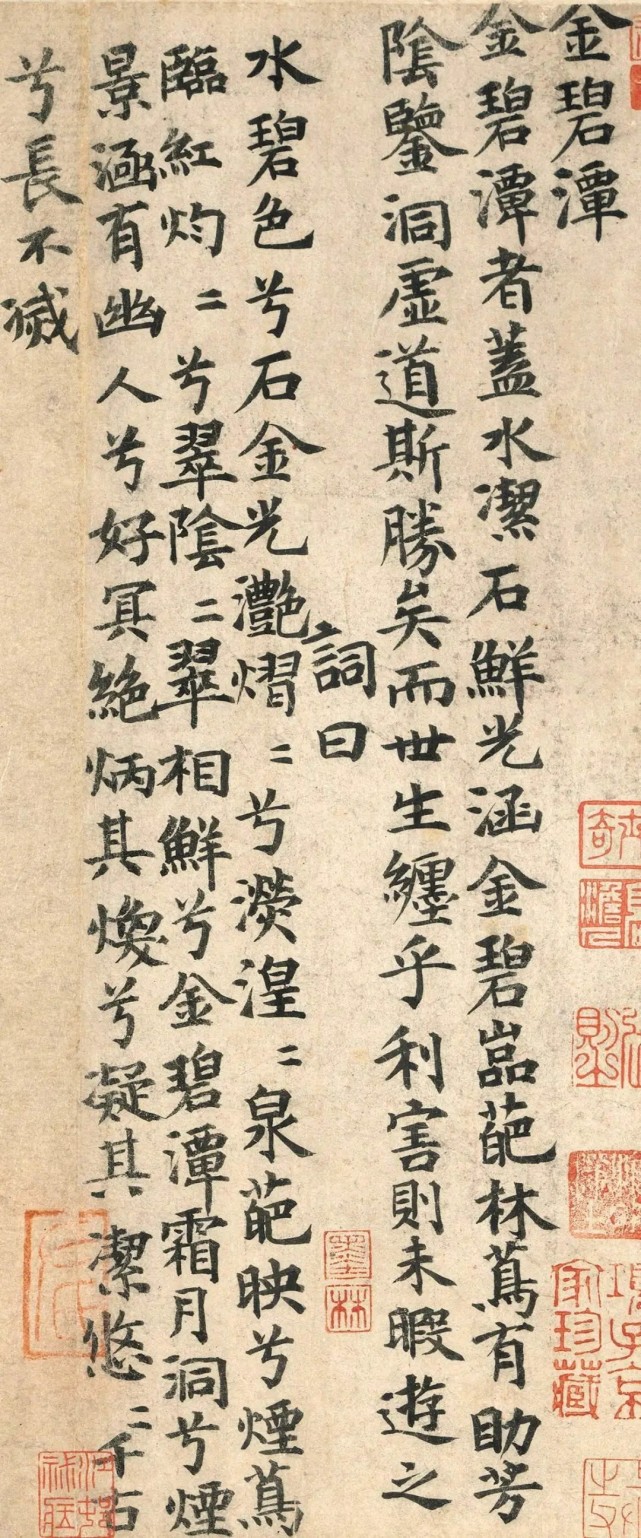 金碧潭
金碧潭者蓋水潔石鮮光涵金碧嵓葩林蔦有助芳
陰鑒洞虛道斯勝矣而世生纏乎利害則未暇遊之
詞曰
水碧色兮石金光灧熠〻兮濙湟〻泉葩映兮煙蔦
臨紅灼〻兮翠陰〻翠相鮮兮金碧潭霜月洞兮煙
景涵有幽人兮好冥絕炳其煥兮凝其潔悠〻千古
兮長不滅
項子京
家珍藏
墨林